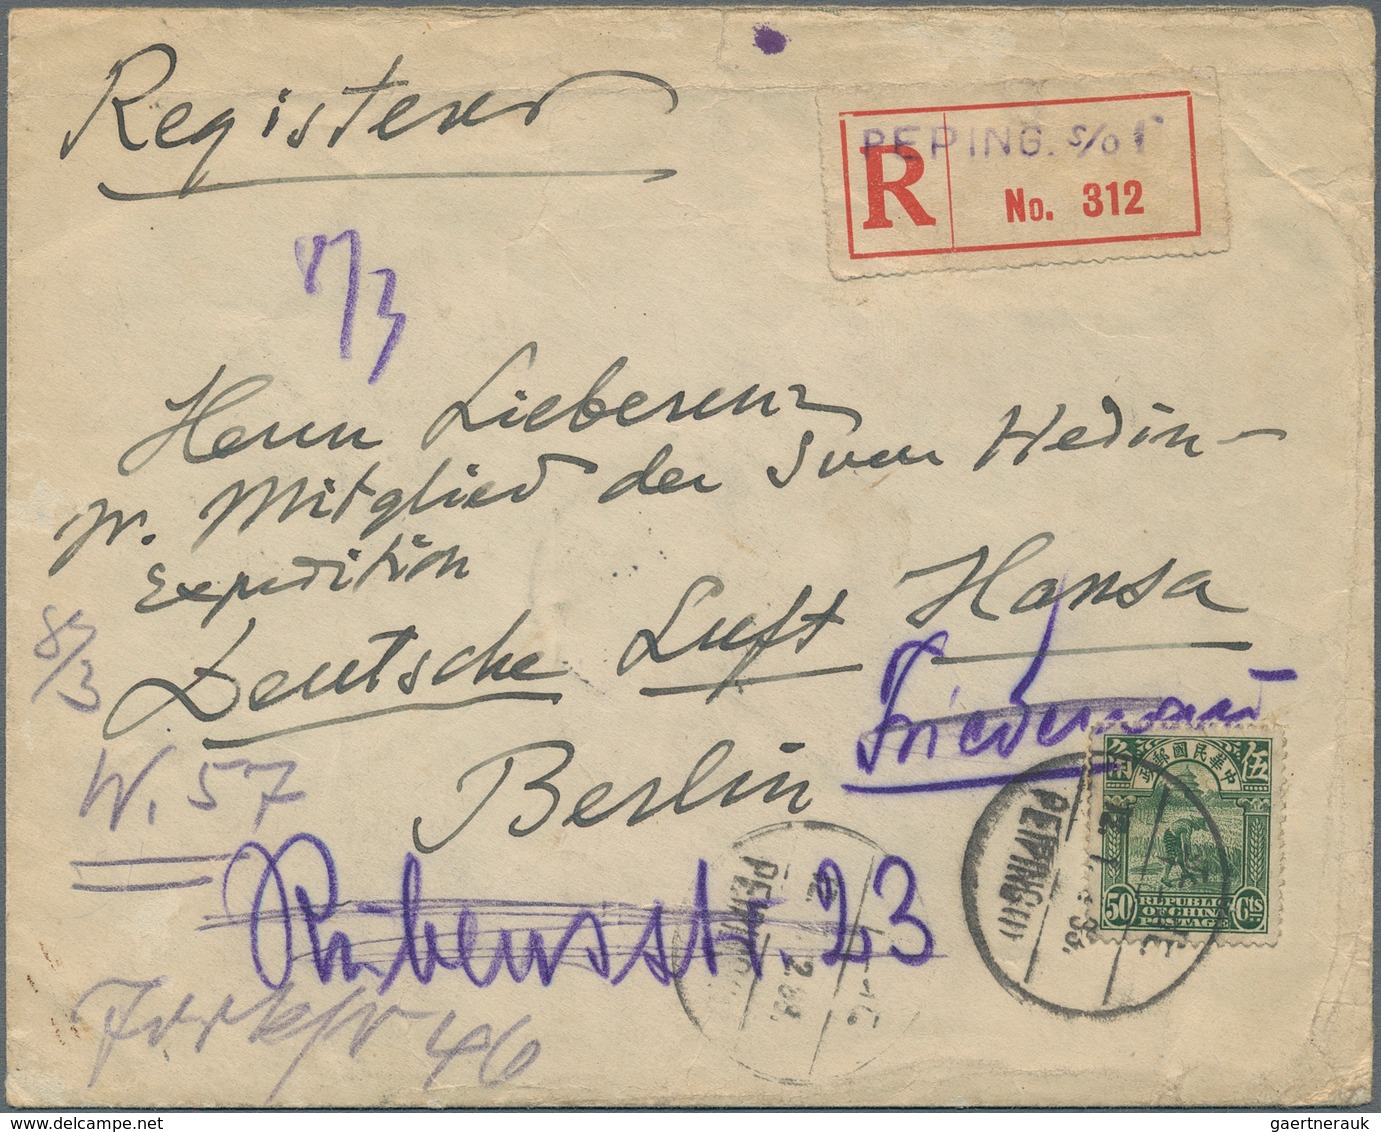 Registered
PEPING. S/O 1
R
No. 312
8/3
Herrn Lieberenz
Mitglied der Sven Hedin-
Expedition
Deutsche Luft Hansa
Berlin
8/3
W. 57
Friedenau
Rubensstr. 23
46
PEIPING
中華民國郵政
伍
50
REPUBLIC
OF CHINA
POSTAGE
Cts
PEIPING
www.delcampe.net
gaertnerauk